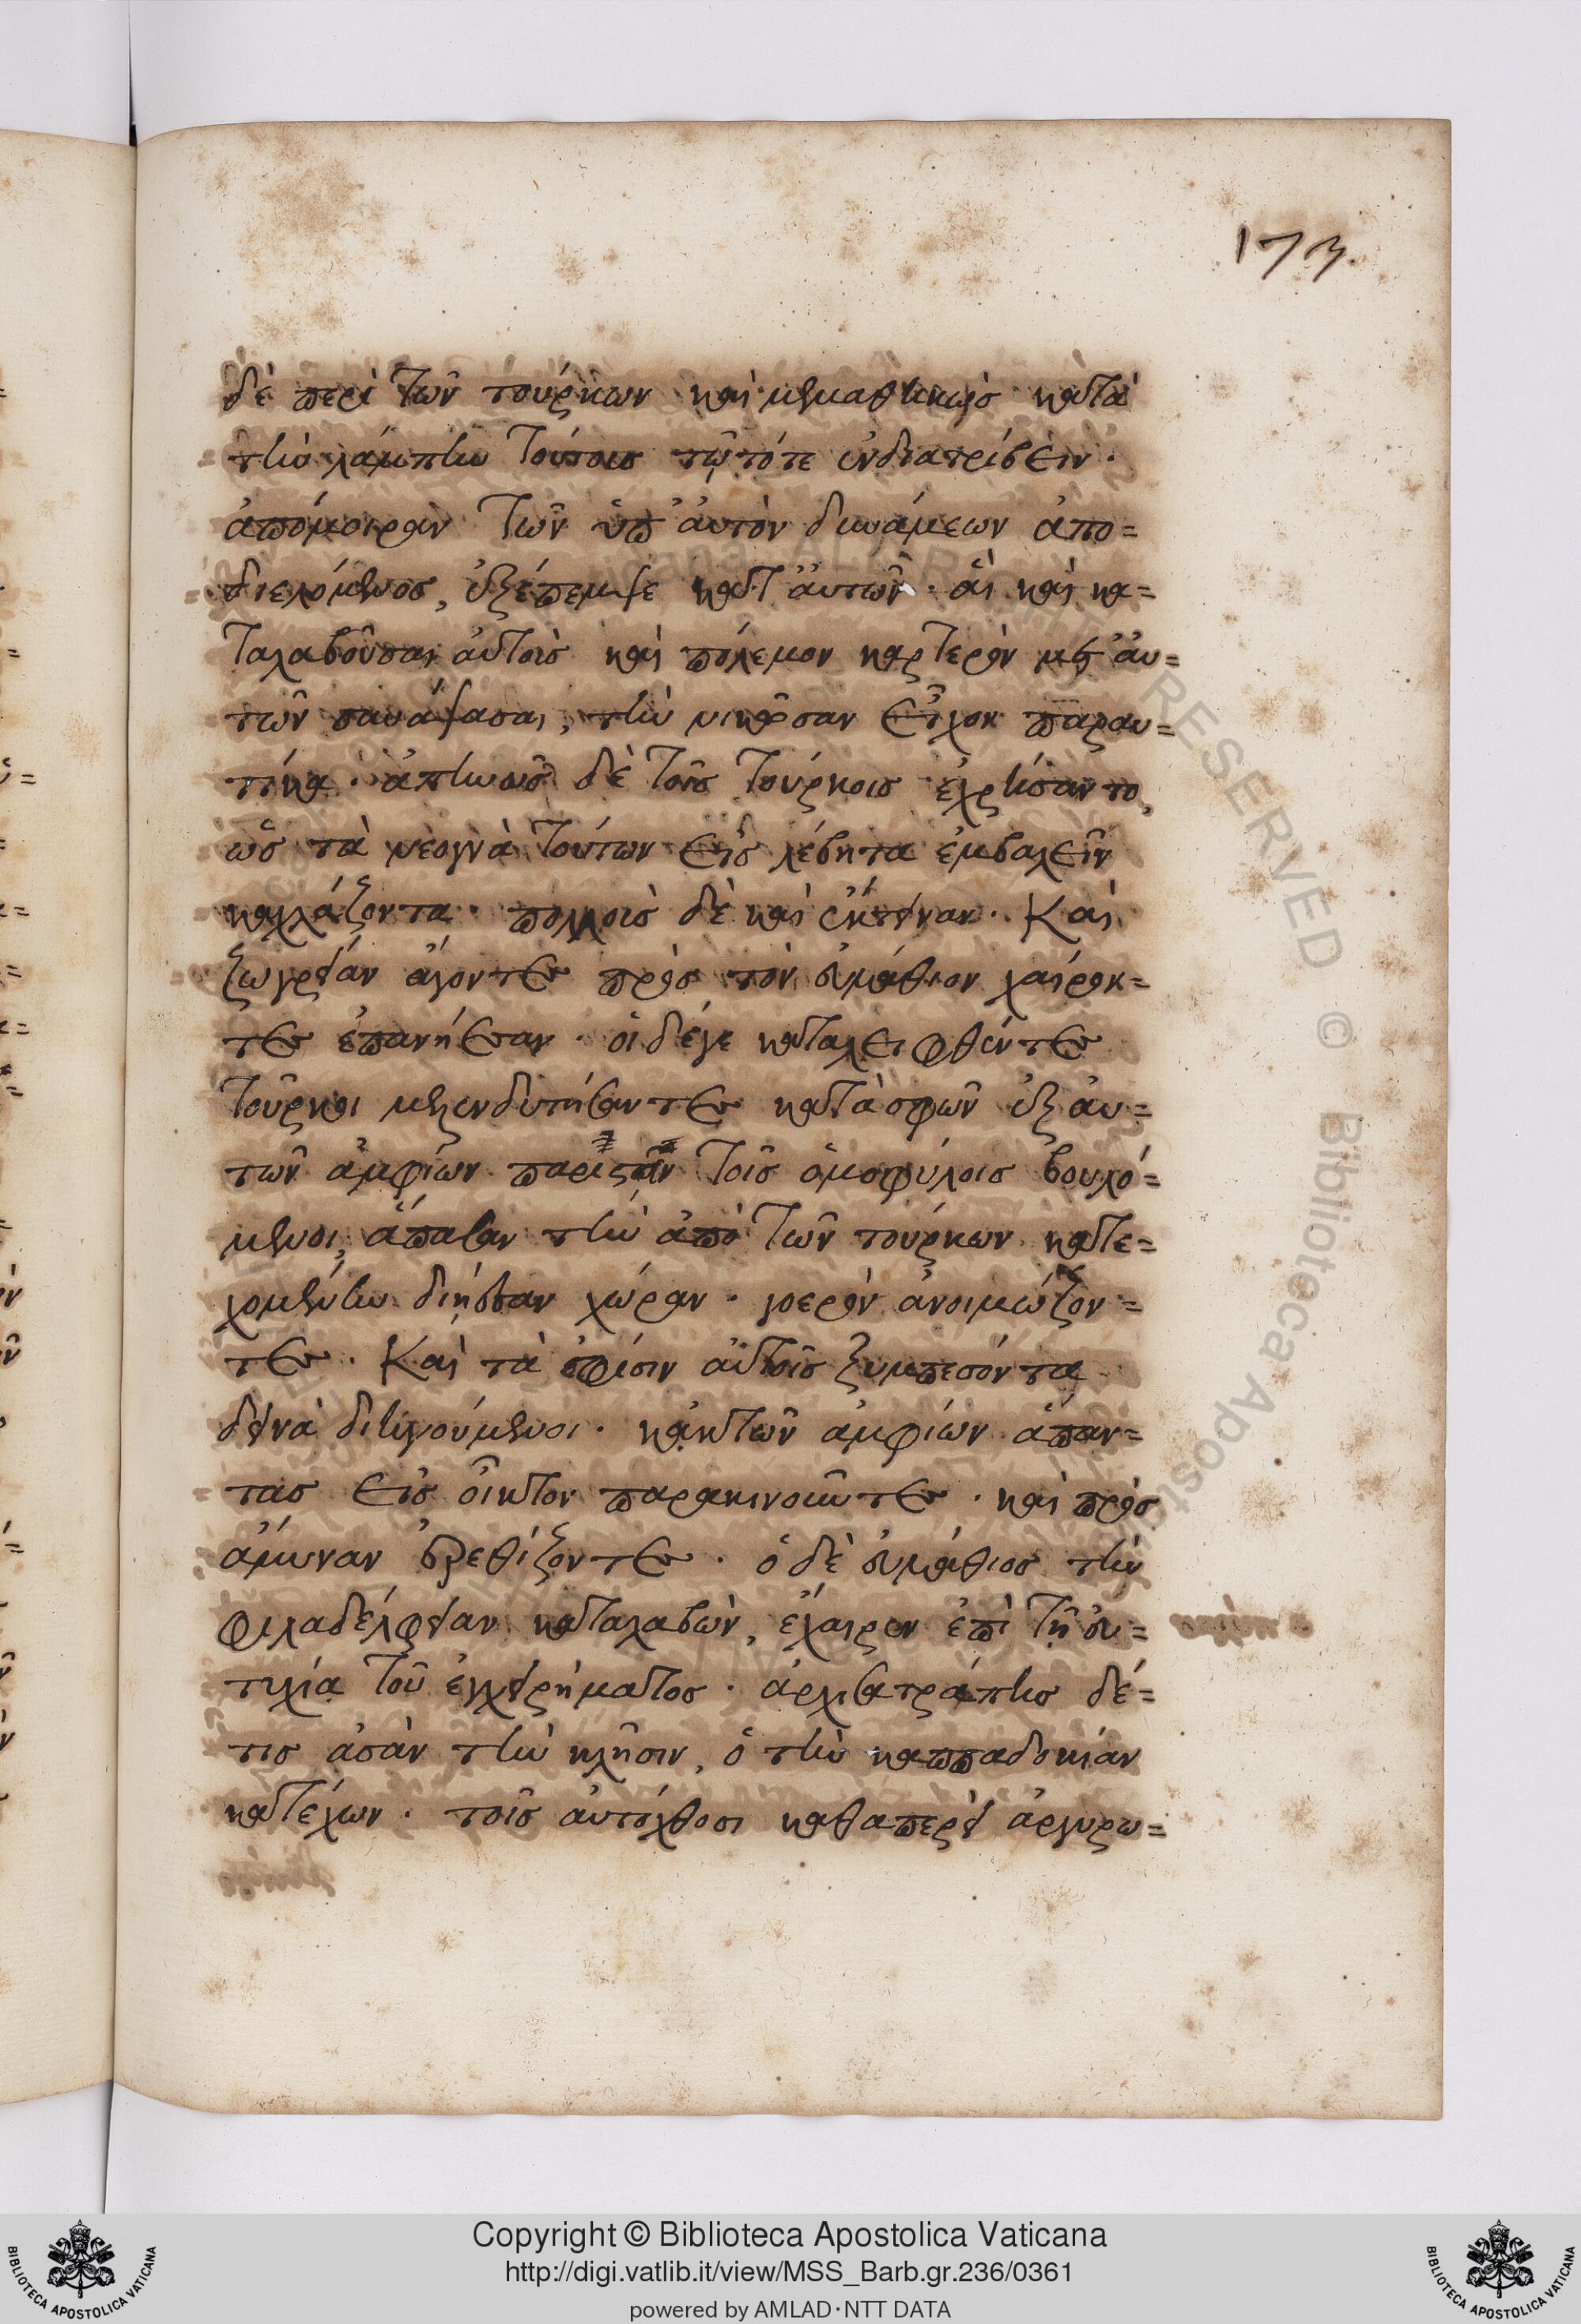 173.
δὲ περὶ τῶν τούρκων καὶ μεμαθηκὼς κατὰ
τὴν λάμπην τούτοις τῷ τότε ἐνδιατρίβειν·
ἀπόμοιραν τῶν ὑπ' ἀυτὸν δυνάμεων ἀπο=
διελόμενος, ἐξέπεμψε κατ' ἀυτῶν· ἁὶ καὶ κα=
ταλαβοῦσαι ἀυτοὺς καὶ πόλεμον καρτερὸν μετ' ἀυ=
τῶν συνάψασαι, τὴν νικῶσαν εἶχον παραυ=
τίκα· ἀπηνῶς δὲ τοῖς τούρκοις ἐχρήσαντο,
ὡς τὰ νεογνὰ τούτων εἰς λέβητα ἐμβαλεῖν
καχλάζοντα· πολλοὺς δὲ καὶ ἔκτειναν· Καὶ
ζωγρείαν ἄγοντες πρὸς τὸν ἐυμάθιον χαίρον=
τες ἐπανήεσαν· οἱ δέγε καταλειφθέντες
τοῦρκοι μελενδυτήσαντες κατὰ σφῶν ἐξ ἀυ=
τῶν ἀμφίων παριστᾶν τοῖς ὁμοφύλοις βουλό=
μενοι, ἅπασαν τὴν ἀπὸ τῶν τούρκων κατε=
χομένην διήεσαν χώραν· γοερὸν ἀνοιμώζον=
τες· Καὶ τὰ σφίσιν ἀυτοῖς ξυμπεσόντα
δεινὰ διηγούμενοι· κἀκ τῶν ἀμφίων ἅπαν=
τας εἰς οἶκτον παρακινοῦντες· καὶ πρὸς
ἄμυναν ἐρεθίζοντες· ὁ δὲ ἐυμάθιος τὴν
φιλαδέλφειαν καταλαβὼν, ἔχαιρεν ἐπὶ τῇ ἐυ=
τυχίᾳ τοῦ ἐγχειρήματος· ἀρχισατράπης δέ=
τις ἀσὰν τὴν κλῆσιν, ὁ τὴν καππαδοκίαν
κατέχων· τοῖς ἀυτόχθοσι καθαπερεὶ ἀργυρω=
RESERVED © Biblioteca Apostolica
Copyright © Biblioteca Apostolica Vaticana
http://digi.vatlib.it/view/MSS_Barb.gr.236/0361
powered by AMLAD·NTT DATA
BIBLIOTECA APOSTOLICA VATICANA
BIBLIOTECA APOSTOLICA VATICANA